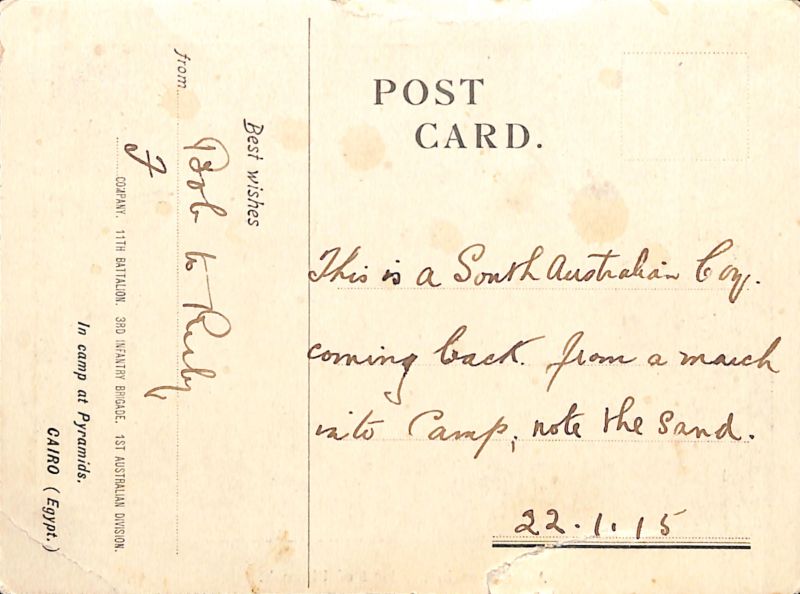 POST
CARD.
This is a South Australian Coy.
coming back from a march
into Camp, note the sand.
22.1.15
Best wishes
from Bob to Ruby
F COMPANY. 11TH BATTALION. 3RD INFANTRY BRIGADE. 1ST AUSTRALIAN DIVISION.
In camp at Pyramids.
CAIRO (Egypt.)